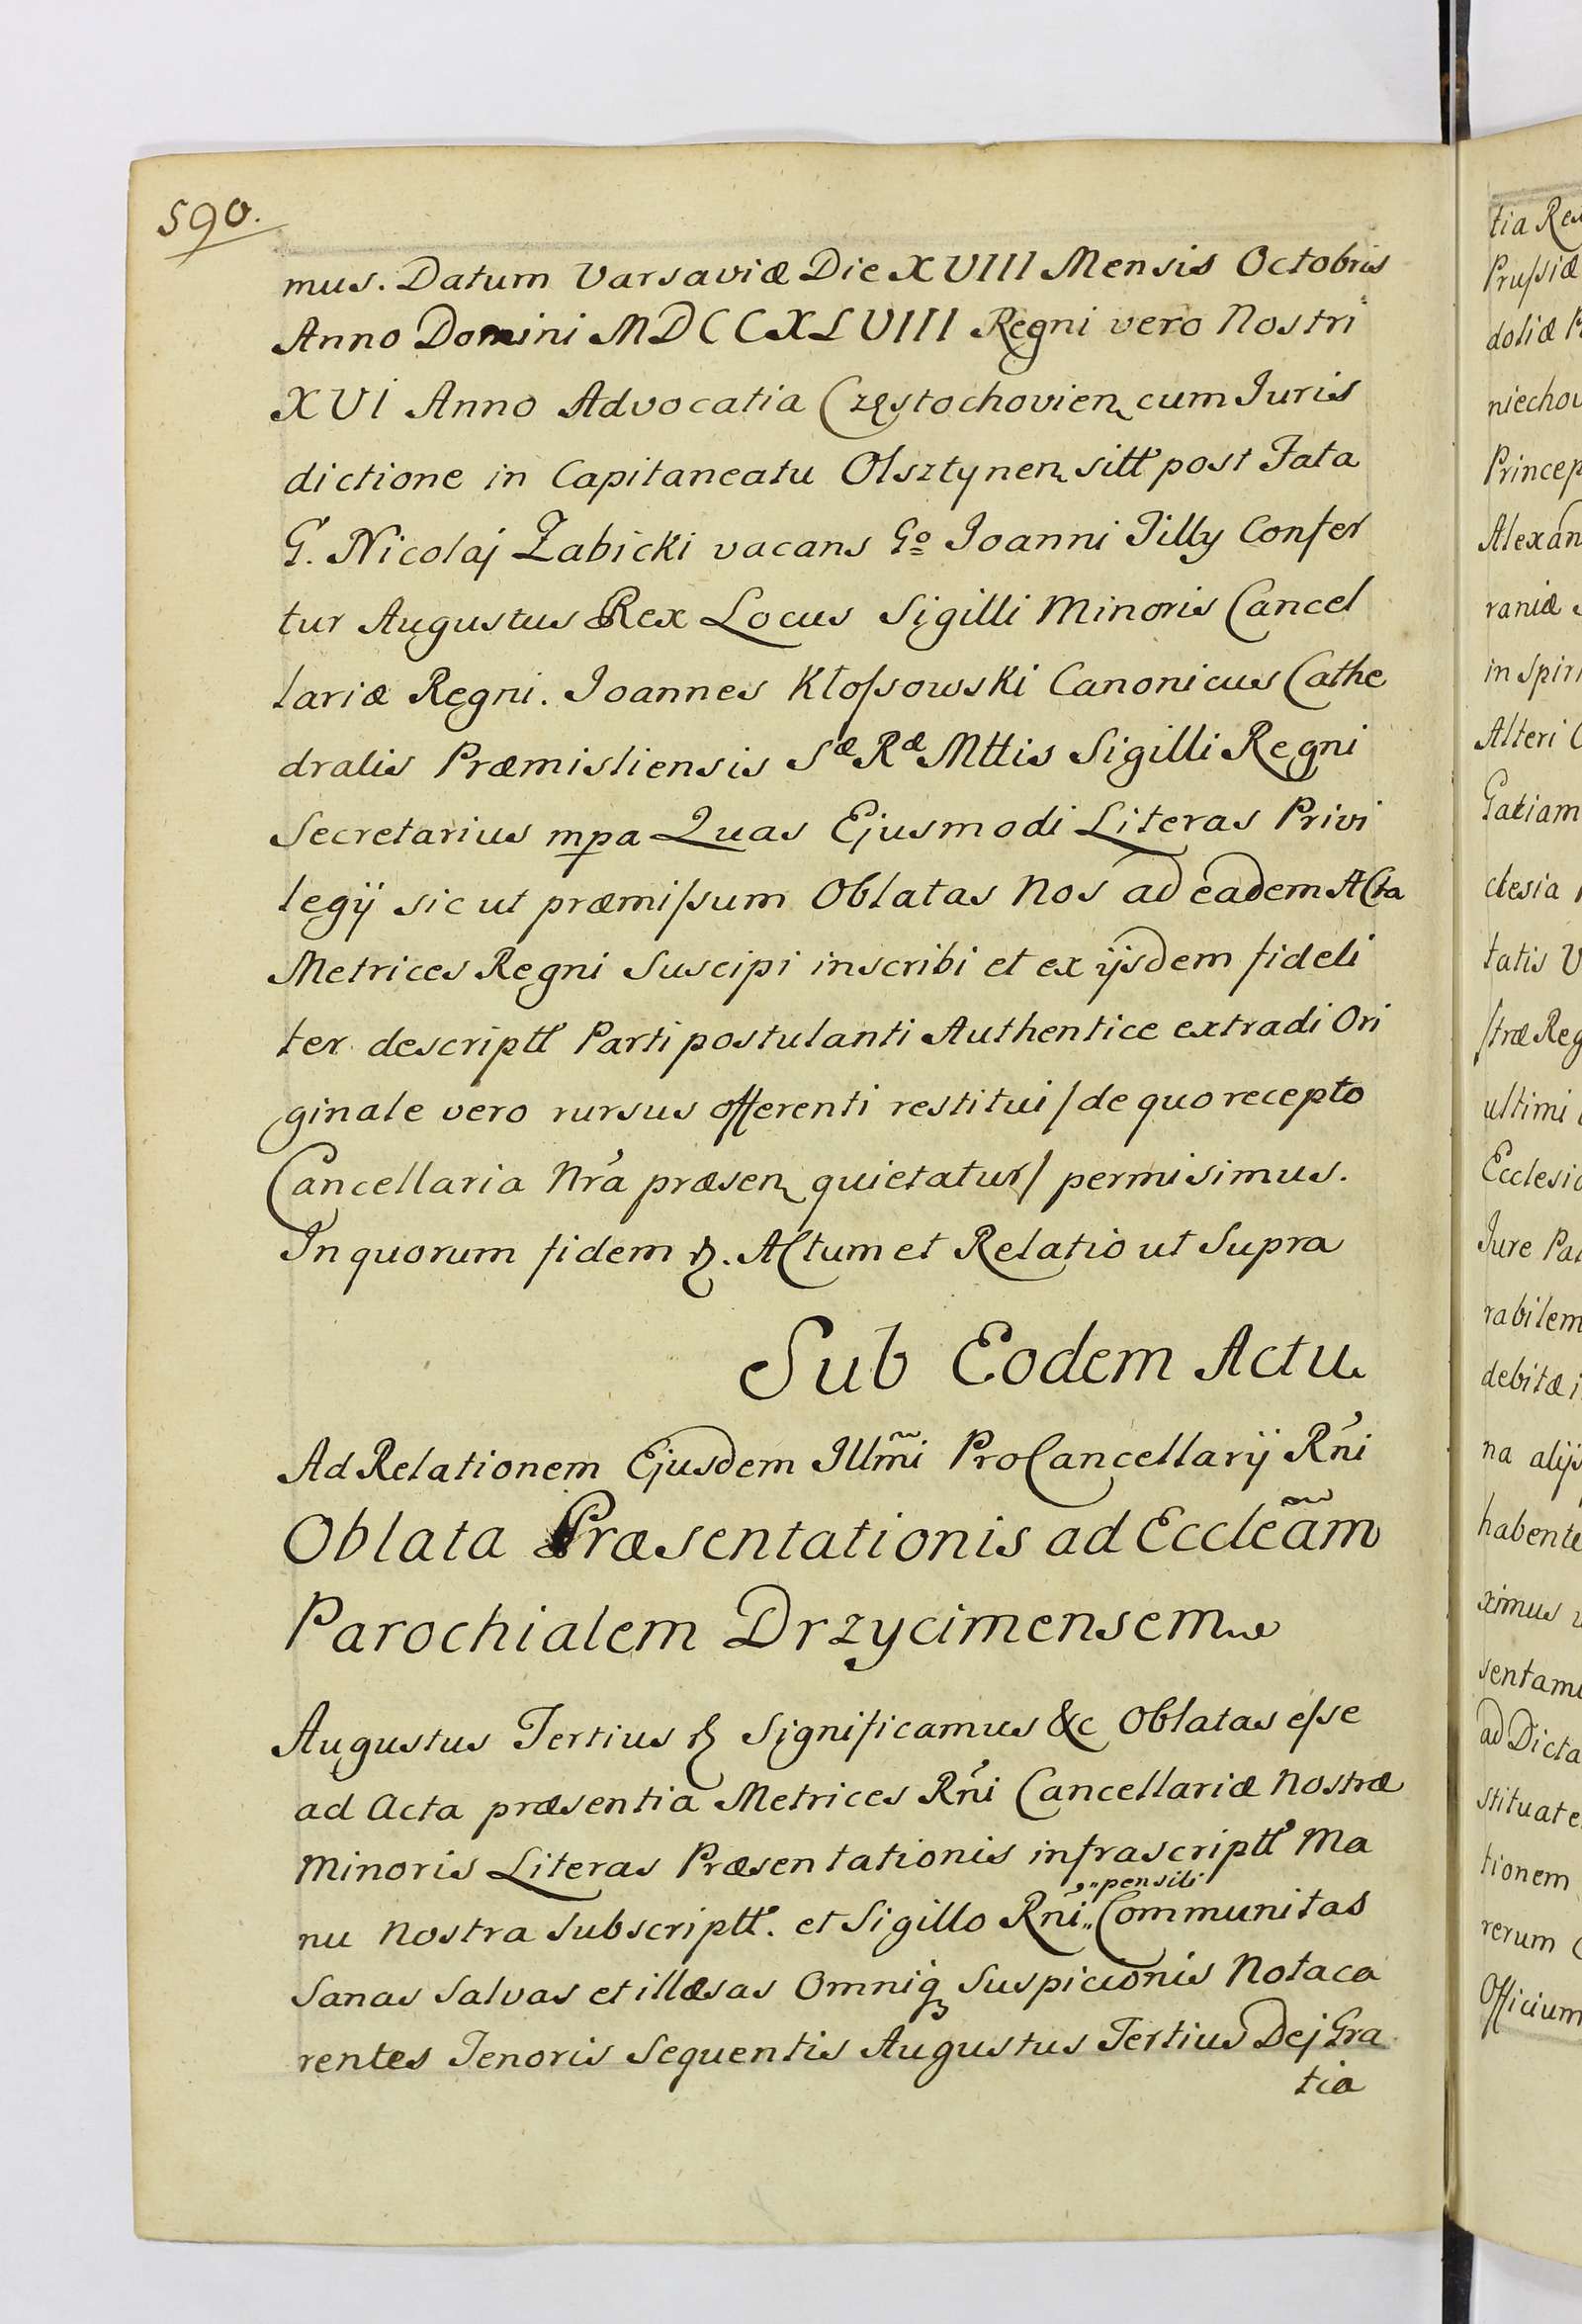 590.
mus. Datum Varsaviæ Die XVIII Mensis Octobris
Anno Domini MDCCXLVIII Regni vero Nostri
XVI Anno Advocatia Częstochovien cum Juris
dictione in Capitaneatu Olsztynen sitt post Fata
G. Nicolaj Zabicki vacans Go Joanni Tilly Confer
tur Augustus Rex Locus Sigilli Minoris Cancel
lariæ Regni. Joannes Kłoſsowski Canonicus Cathe
dralis Præmisliensis Sæ Ræ Mttis Sigilli Regni
Secretarius mpa Quas Ejusmodi Literas Privi
legij sicut præmiſsum Oblatas Nos ad eadem Acta
Metrices Regni Suscipi inscribi et ex ijsdem fideli
ter descriptt Parti postulanti Authentice extradi Ori
ginale vero rursus offerenti restitui / de quo recepto
Cancellaria Nrã præsen quietatur / permisimus.
In quorum fidem &. Actum et Relatio ut Supra
Sub Eodem Actu
Ad Relationem Ejusdem Illm̃i ProCancellarij Rñi
Oblata Præsentationis ad Eccleãm
Parochialem Drzycimensem
Augustus Tertius & Significamus &c Oblatas eſse
ad Acta præsentia Metrices Rñi Cancellariæ Nostræ
Minoris Literas Præsentationis infrascriptt Ma
nu Nostra Subscriptt. et Sigillo Rñi „pensili„ Communitas
Sanas Salvas et illæsas Omniq Suspicionis Nota ca
rentes Tenoris Sequentis Augustus Tertius Dej Gra
tia
tia
Pruſsiæ
doliæ
niechov
Princep
Alexan
raniæ
in Spiri
Alteri
Gatiam
clesia
tatis
stræ Reg
ultimi
Ecclesi
Jure Pa
rabilem
debitæ
na alijs
habente
ximus
sentam
ad Dicta
stituat
tionem
rerum
Officium